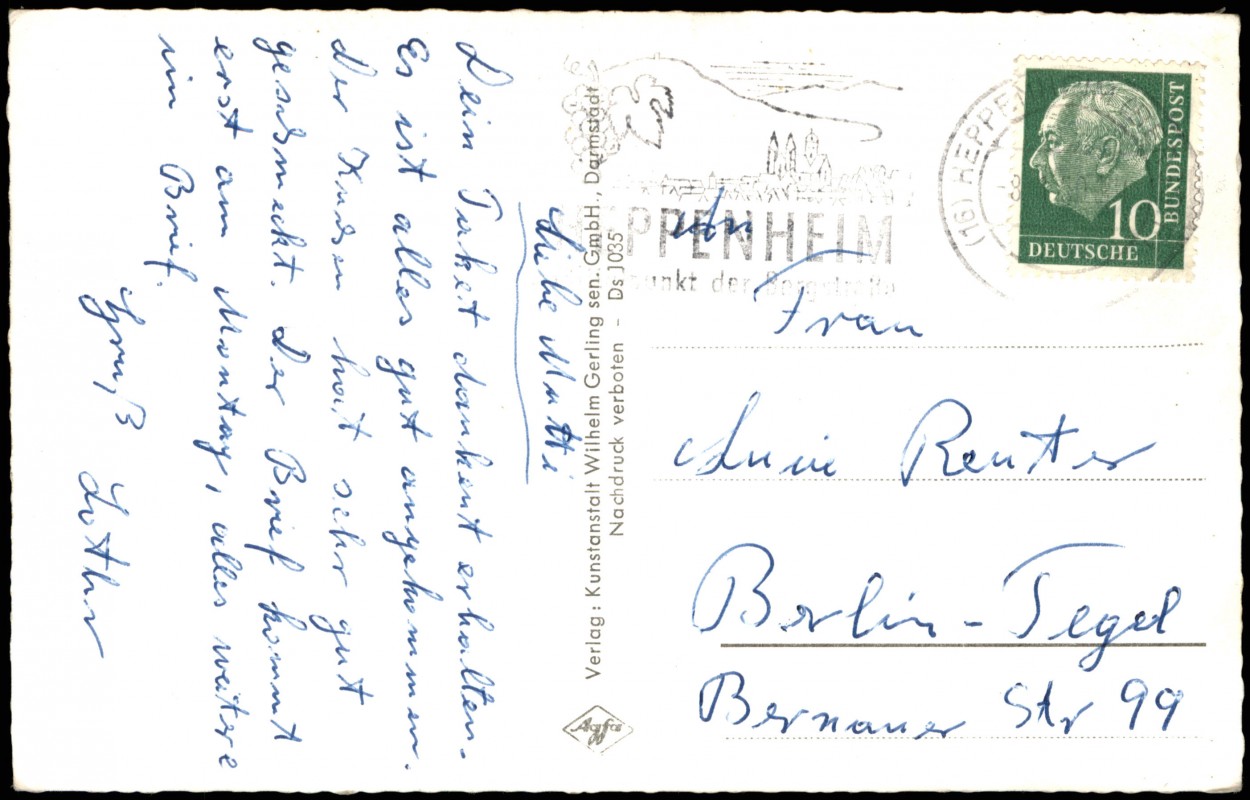 Liebe Mutti
Dein Paket dankent erhalten.
Es ist alles gut angekommen.
Der Kuchen hat sehr gut
geschmeckt. Der Brief kommt
erst am Montag, alles weitere
im Brief.
Gruß
Lothar
Verlag: Kunstanstalt Wilhelm Gerling sen. GmbH., Darmstadt
Nachdruck verboten - Ds J 035
Agfa
PPENHEIM
punkt der Bergstraße
(16) HEPPE
10
DEUTSCHE
BUNDESPOST
An
Frau
Reuter
Berlin-Tegel
Bernauer Str 99